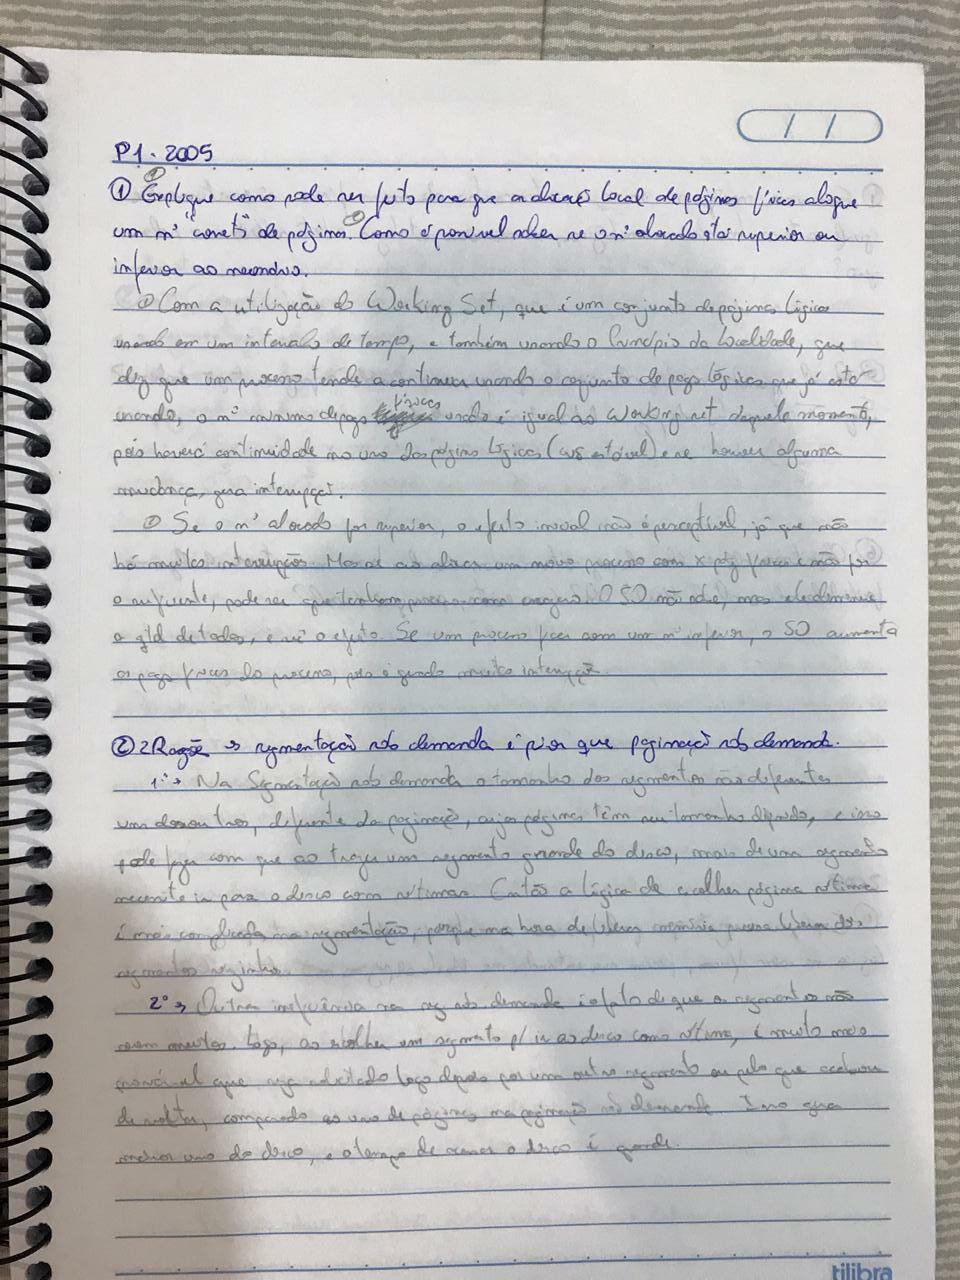 P1 - 2005
① Explique como pode ser feito para que a alocação local de páginas físicas aloque
um nº "correto" de páginas. Como é possível saber se o nº alocado está superior ou
inferior ao necessário.
① Com a utilização do Working Set, que é um conjunto de páginas lógicas
usado em um intervalo de tempo, e também usando o Princípio da Localidade, que
diz que um processo tende a continuar usando o conjunto de pags lógicas que já está
físicas
usando, o nº mínimo de pags usado é igual ao Working set daquele momento,
pois haverá continuidade no uso das páginas lógicas (WS estável) e se houver alguma
mudança, gera interrupção.
② Se o nº alocado for superior, o efeito inicial não é perceptível, já que não
há muitas interrupções. Mas se ao alocar um novo processo com x pág físicas e não for
o suficiente, pode ser que tenham O SO não sabe, mas ele diminui
a qtd de todos, e vê o efeito. Se um processo ficar com um nº inferior, o SO aumenta
as pags físicas do processo, pois é gerado muita interrupção.
② 2 Razões → segmentação sob demanda é pior que paginação sob demanda.
1º → Na Segmentação sob demanda o tamanho dos segmentos são diferentes
um dos outros, diferente da paginação, cujas páginas têm seu tamanho e isso
pode fazer com que ao trazer um segmento grande do disco, mais de um segmento
necessite ir para o disco como vítimas. Então a lógica de escolher página vítima
é mais complicada na segmentação, porque na hora de liberar memória precisa liberar dos
segmentos vizinhos.
2º → Outra na seg sob demanda é o fato de que os segmentos são
Logo, ao escolher um segmento p/ ir ao disco como vítima, é muito mais
provável que seja solicitado logo depois por um outro segmento ou pelo que acabou
de comparado ao uso de páginas na paginação sob demanda. Isso gera
maior uso do disco, e o tempo de acessar o disco é grande.
tilibra